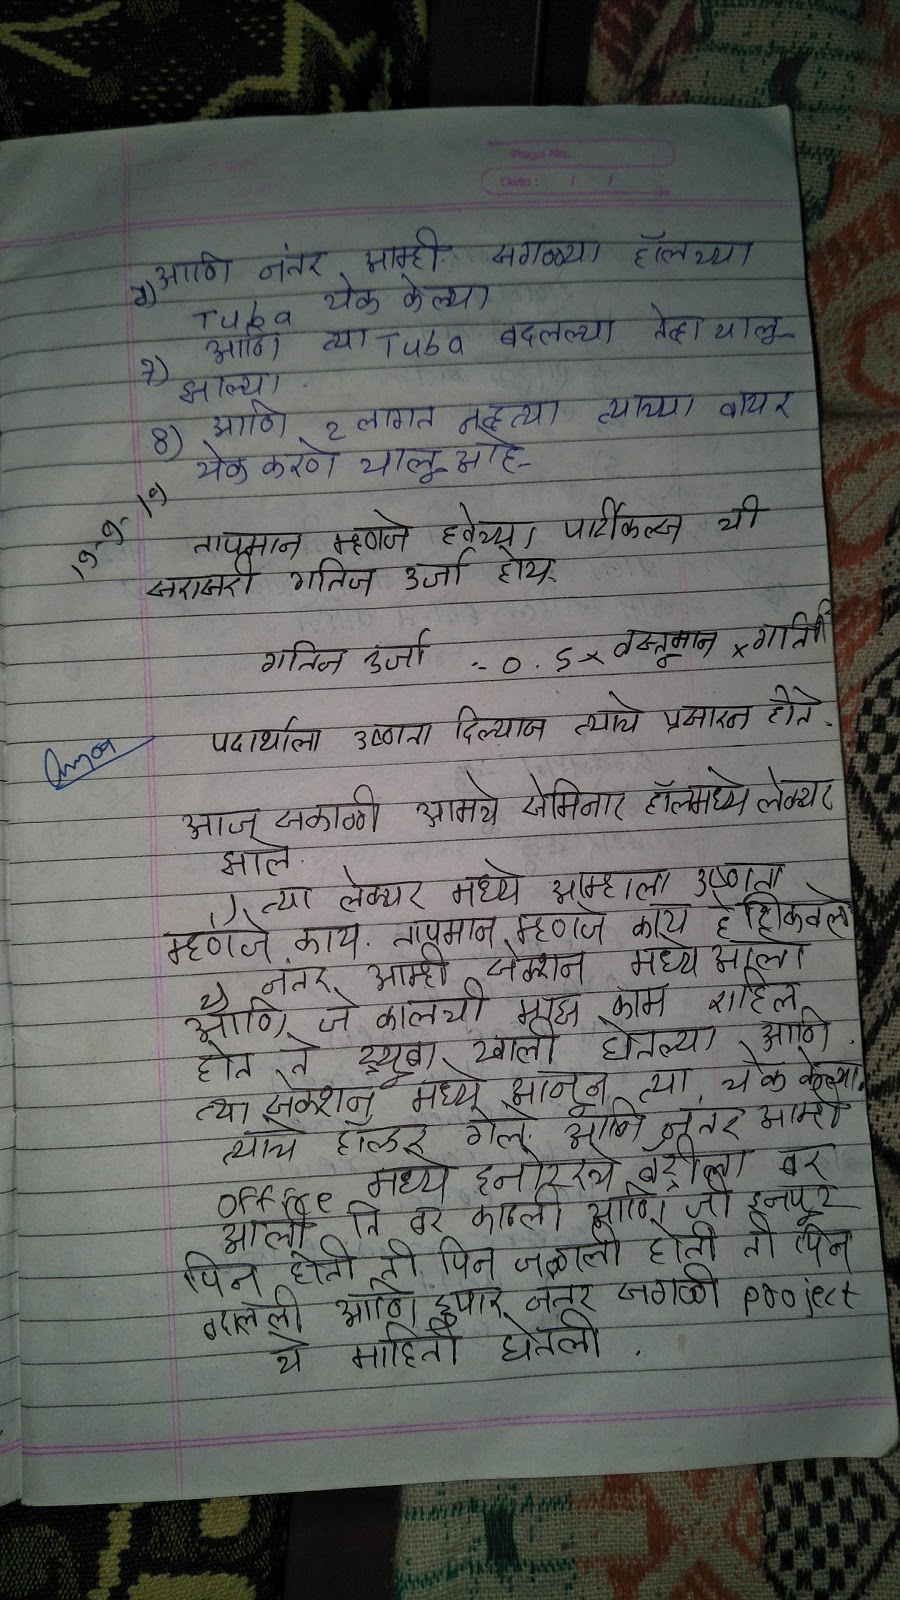 Page No.
Date: / /
आणि नंतर आम्ही सगळ्या हॉलच्या
Tuba चेक केल्या
7) आणि त्या Tuba बदलल्या तेव्हा चालू
झाल्या.
8) आणि 2 लागत नव्हत्या त्याच्या वायर
चेक करणे चालू आहे-
तापमान म्हणजे हवेच्या पार्टीकल्ज ची
सरासरी गतिज उर्जा होय.
गतिज उर्जा = 0.5 × वस्तूमान ×
पदार्थाला उष्णता दिल्यास त्याचे प्रसारन होते.
आज सकाळी आमचे सेमिनार हॉलमध्ये लेक्चर
झाले.
1) त्या लेक्चर मध्ये आम्हाला उष्णता
म्हणजे काय. तापमान म्हणजे काय हे शिकवले
2) नंतर आम्ही सेक्शन मध्ये आलो
आणि जे कालची काम राहिल
होत ते ट्यूबा खाली घेतल्या आणि
त्या सेक्शन मध्ये आनून त्या चेक केल्या.
त्याचे होल्डर गेले. आणि नंतर आम्ही
office मध्ये इनोरटरचे बॅट्रीला वर
आलो ति वर काढली आणि जी इनपूट
पिन होती ती पिन जळाली होती ती पिन
बदलली आणि दुपार नंतर सगळी project
चे माहिती घेतली.